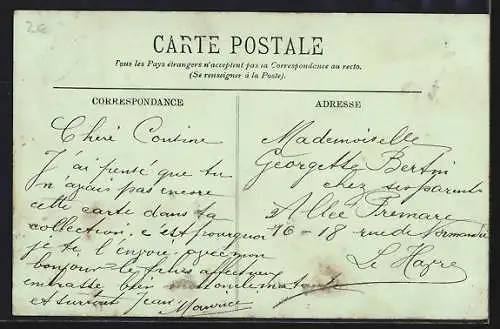 2e
CARTE POSTALE
Tous les Pays étrangers n'acceptent pas la Correspondance au recto.
(Se renseigner à la Poste).
CORRESPONDANCE
Chère Cousine
J'ai pensé que tu
n'avais pas encore
cette carte dans ta
collection, c'est pourquoi
je te l'envoie avec mon
bonjour le plus affectueux
embrasse bien
et surtout Jean Maurice
ADRESSE
Mademoiselle
Georgette Bertin
chez ses parents
2 Allée Fremare
16-18 rue de Normandie
Le Havre